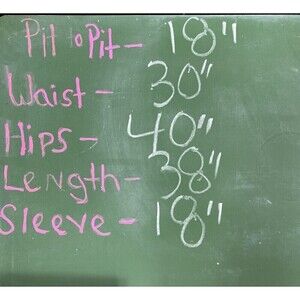 Pit to Pit - 18"
Waist - 30"
Hips - 40"
Length - 38"
Sleeve - 18"